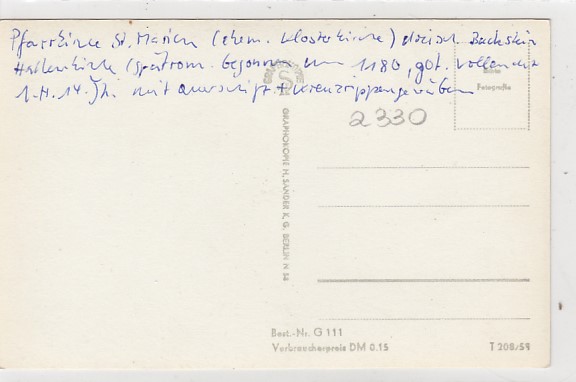 Pfarrkirche St. Marien (ehem. Klosterkirche) dreisch. Backstein
Hallenkirche (spätrom. begonnen um 1180, got. vollendet
1. H. 14. Jh. mit Querschiff + Kreuzrippengewölben
2330
Echte
Fotografie
GRAPHOKOPIE H. SANDER K. G. BERLIN N 54
Best.-Nr. G 111
Verbraucherpreis DM 0.15
T 208/59